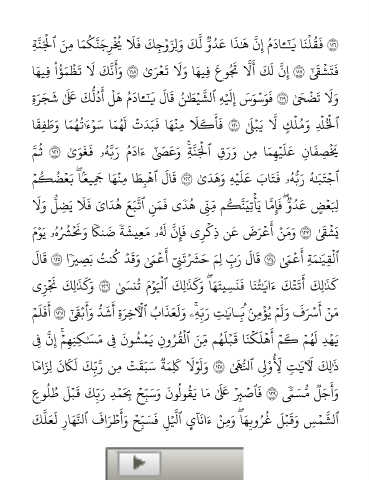 ﴿١١٦﴾ فَقُلْنَا يَـٰٓـَٔادَمُ إِنَّ هَـٰذَا عَدُوٌّ لَّكَ وَلِزَوْجِكَ فَلَا يُخْرِجَنَّكُمَا مِنَ ٱلْجَنَّةِ
فَتَشْقَىٰٓ ﴿١١٧﴾ إِنَّ لَكَ أَلَّا تَجُوعَ فِيهَا وَلَا تَعْرَىٰ ﴿١١٨﴾ وَأَنَّكَ لَا تَظْمَؤُا۟ فِيهَا
وَلَا تَضْحَىٰ ﴿١١٩﴾ فَوَسْوَسَ إِلَيْهِ ٱلشَّيْطَـٰنُ قَالَ يَـٰٓـَٔادَمُ هَلْ أَدُلُّكَ عَلَىٰ شَجَرَةِ
ٱلْخُلْدِ وَمُلْكٍ لَّا يَبْلَىٰ ﴿١٢٠﴾ فَأَكَلَا مِنْهَا فَبَدَتْ لَهُمَا سَوْءَٰتُهُمَا وَطَفِقَا
يَخْصِفَانِ عَلَيْهِمَا مِن وَرَقِ ٱلْجَنَّةِ ۚ وَعَصَىٰٓ ءَادَمُ رَبَّهُۥ فَغَوَىٰ ﴿١٢١﴾ ثُمَّ
ٱجْتَبَـٰهُ رَبُّهُۥ فَتَابَ عَلَيْهِ وَهَدَىٰ ﴿١٢٢﴾ قَالَ ٱهْبِطَا مِنْهَا جَمِيعًۢا ۖ بَعْضُكُمْ
لِبَعْضٍ عَدُوٌّ ۖ فَإِمَّا يَأْتِيَنَّكُم مِّنِّى هُدًى فَمَنِ ٱتَّبَعَ هُدَاىَ فَلَا يَضِلُّ وَلَا
يَشْقَىٰ ﴿١٢٣﴾ وَمَنْ أَعْرَضَ عَن ذِكْرِى فَإِنَّ لَهُۥ مَعِيشَةً ضَنكًا وَنَحْشُرُهُۥ يَوْمَ
ٱلْقِيَـٰمَةِ أَعْمَىٰ ﴿١٢٤﴾ قَالَ رَبِّ لِمَ حَشَرْتَنِىٓ أَعْمَىٰ وَقَدْ كُنتُ بَصِيرًا ﴿١٢٥﴾ قَالَ
كَذَٰلِكَ أَتَتْكَ ءَايَـٰتُنَا فَنَسِيتَهَا ۖ وَكَذَٰلِكَ ٱلْيَوْمَ تُنسَىٰ ﴿١٢٦﴾ وَكَذَٰلِكَ نَجْزِى
مَنْ أَسْرَفَ وَلَمْ يُؤْمِنۢ بِـَٔايَـٰتِ رَبِّهِۦ ۚ وَلَعَذَابُ ٱلْـَٔاخِرَةِ أَشَدُّ وَأَبْقَىٰٓ ﴿١٢٧﴾ أَفَلَمْ
يَهْدِ لَهُمْ كَمْ أَهْلَكْنَا قَبْلَهُم مِّنَ ٱلْقُرُونِ يَمْشُونَ فِى مَسَـٰكِنِهِمْ ۗ إِنَّ فِى
ذَٰلِكَ لَـَٔايَـٰتٍ لِّأُو۟لِى ٱلنُّهَىٰ ﴿١٢٨﴾ وَلَوْلَا كَلِمَةٌ سَبَقَتْ مِن رَّبِّكَ لَكَانَ لِزَامًا
وَأَجَلٌ مُّسَمًّى ﴿١٢٩﴾ فَٱصْبِرْ عَلَىٰ مَا يَقُولُونَ وَسَبِّحْ بِحَمْدِ رَبِّكَ قَبْلَ طُلُوعِ
ٱلشَّمْسِ وَقَبْلَ غُرُوبِهَا ۖ وَمِنْ ءَانَآئِ ٱلَّيْلِ فَسَبِّحْ وَأَطْرَافَ ٱلنَّهَارِ لَعَلَّكَ